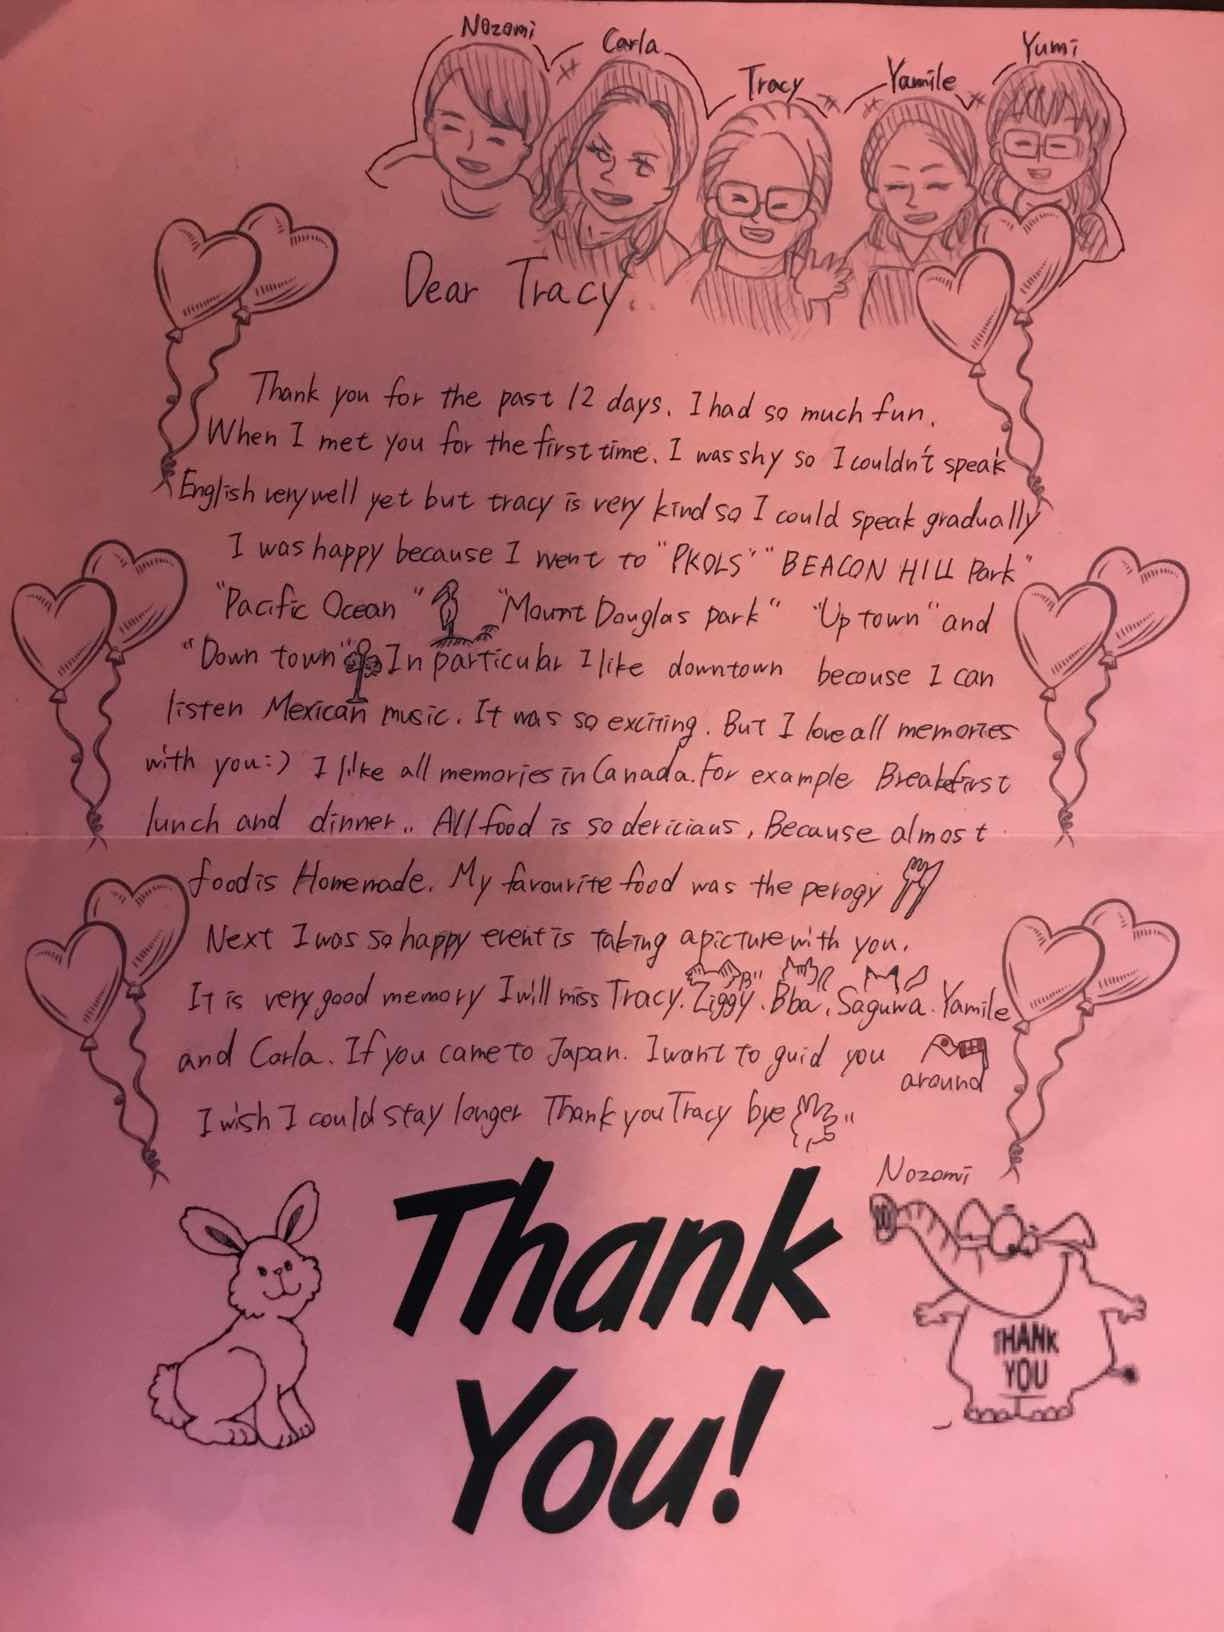 Nozomi Carla Tracy Yamile Yumi
Dear Tracy.
Thank you for the past 12 days. I had so much fun.
When I met you for the first time. I was shy so I couldn't speak
English very well yet but tracy is very kind so I could speak gradually
I was happy because I went to "PKOLS" "BEACON HILL Park"
"Pacific Ocean" "Mount Douglas park" "Up town" and
"Down town" In particular I like downtown because I can
listen Mexican music. It was so exciting. But I love all memories
with you:) I like all memories in Canada. For example Breakefirst
lunch and dinner.. All food is so dericians, Because almost
food is Homemade. My favourite food was the perogy
Next I was so happy event is taking a picture with you.
It is very good memory I will miss Tracy. Ziggy. Bba. Saguwa. Yamile
and Carla. If you came to Japan. I want to guid you
around
I wish I could stay longer Thank you Tracy bye
Nozomi
Thank
You!
THANK
YOU